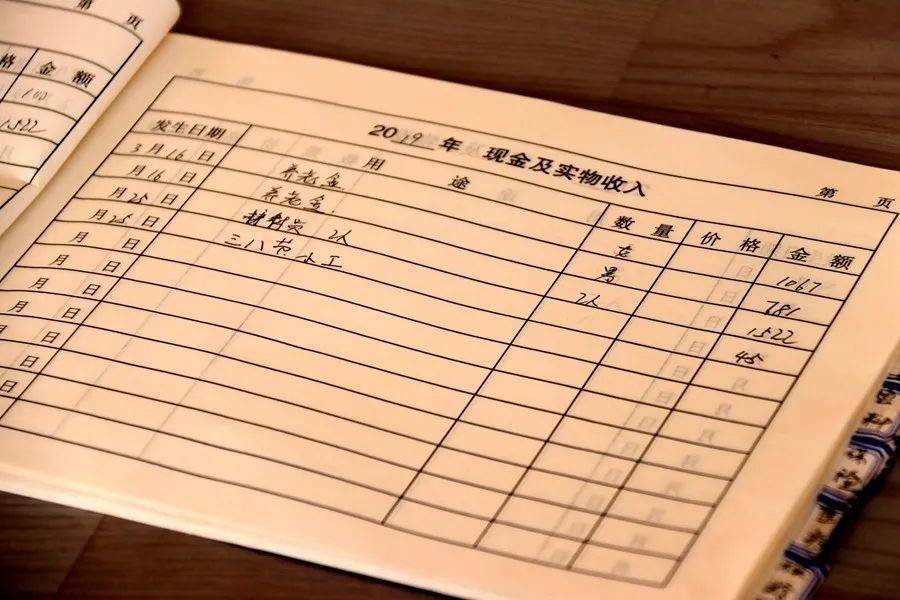 第 页
格 金 额
100
1522
2019年 现金及实物收入
第 页
发生日期 用 途 数 量 价 格 金 额
3月16日 养老金 女 1067
月16日 养老金 男 781
月25日 2人 2人 1522
月25日 三八节 小工 45
月 日
月 日
月 日
月 日
日
日